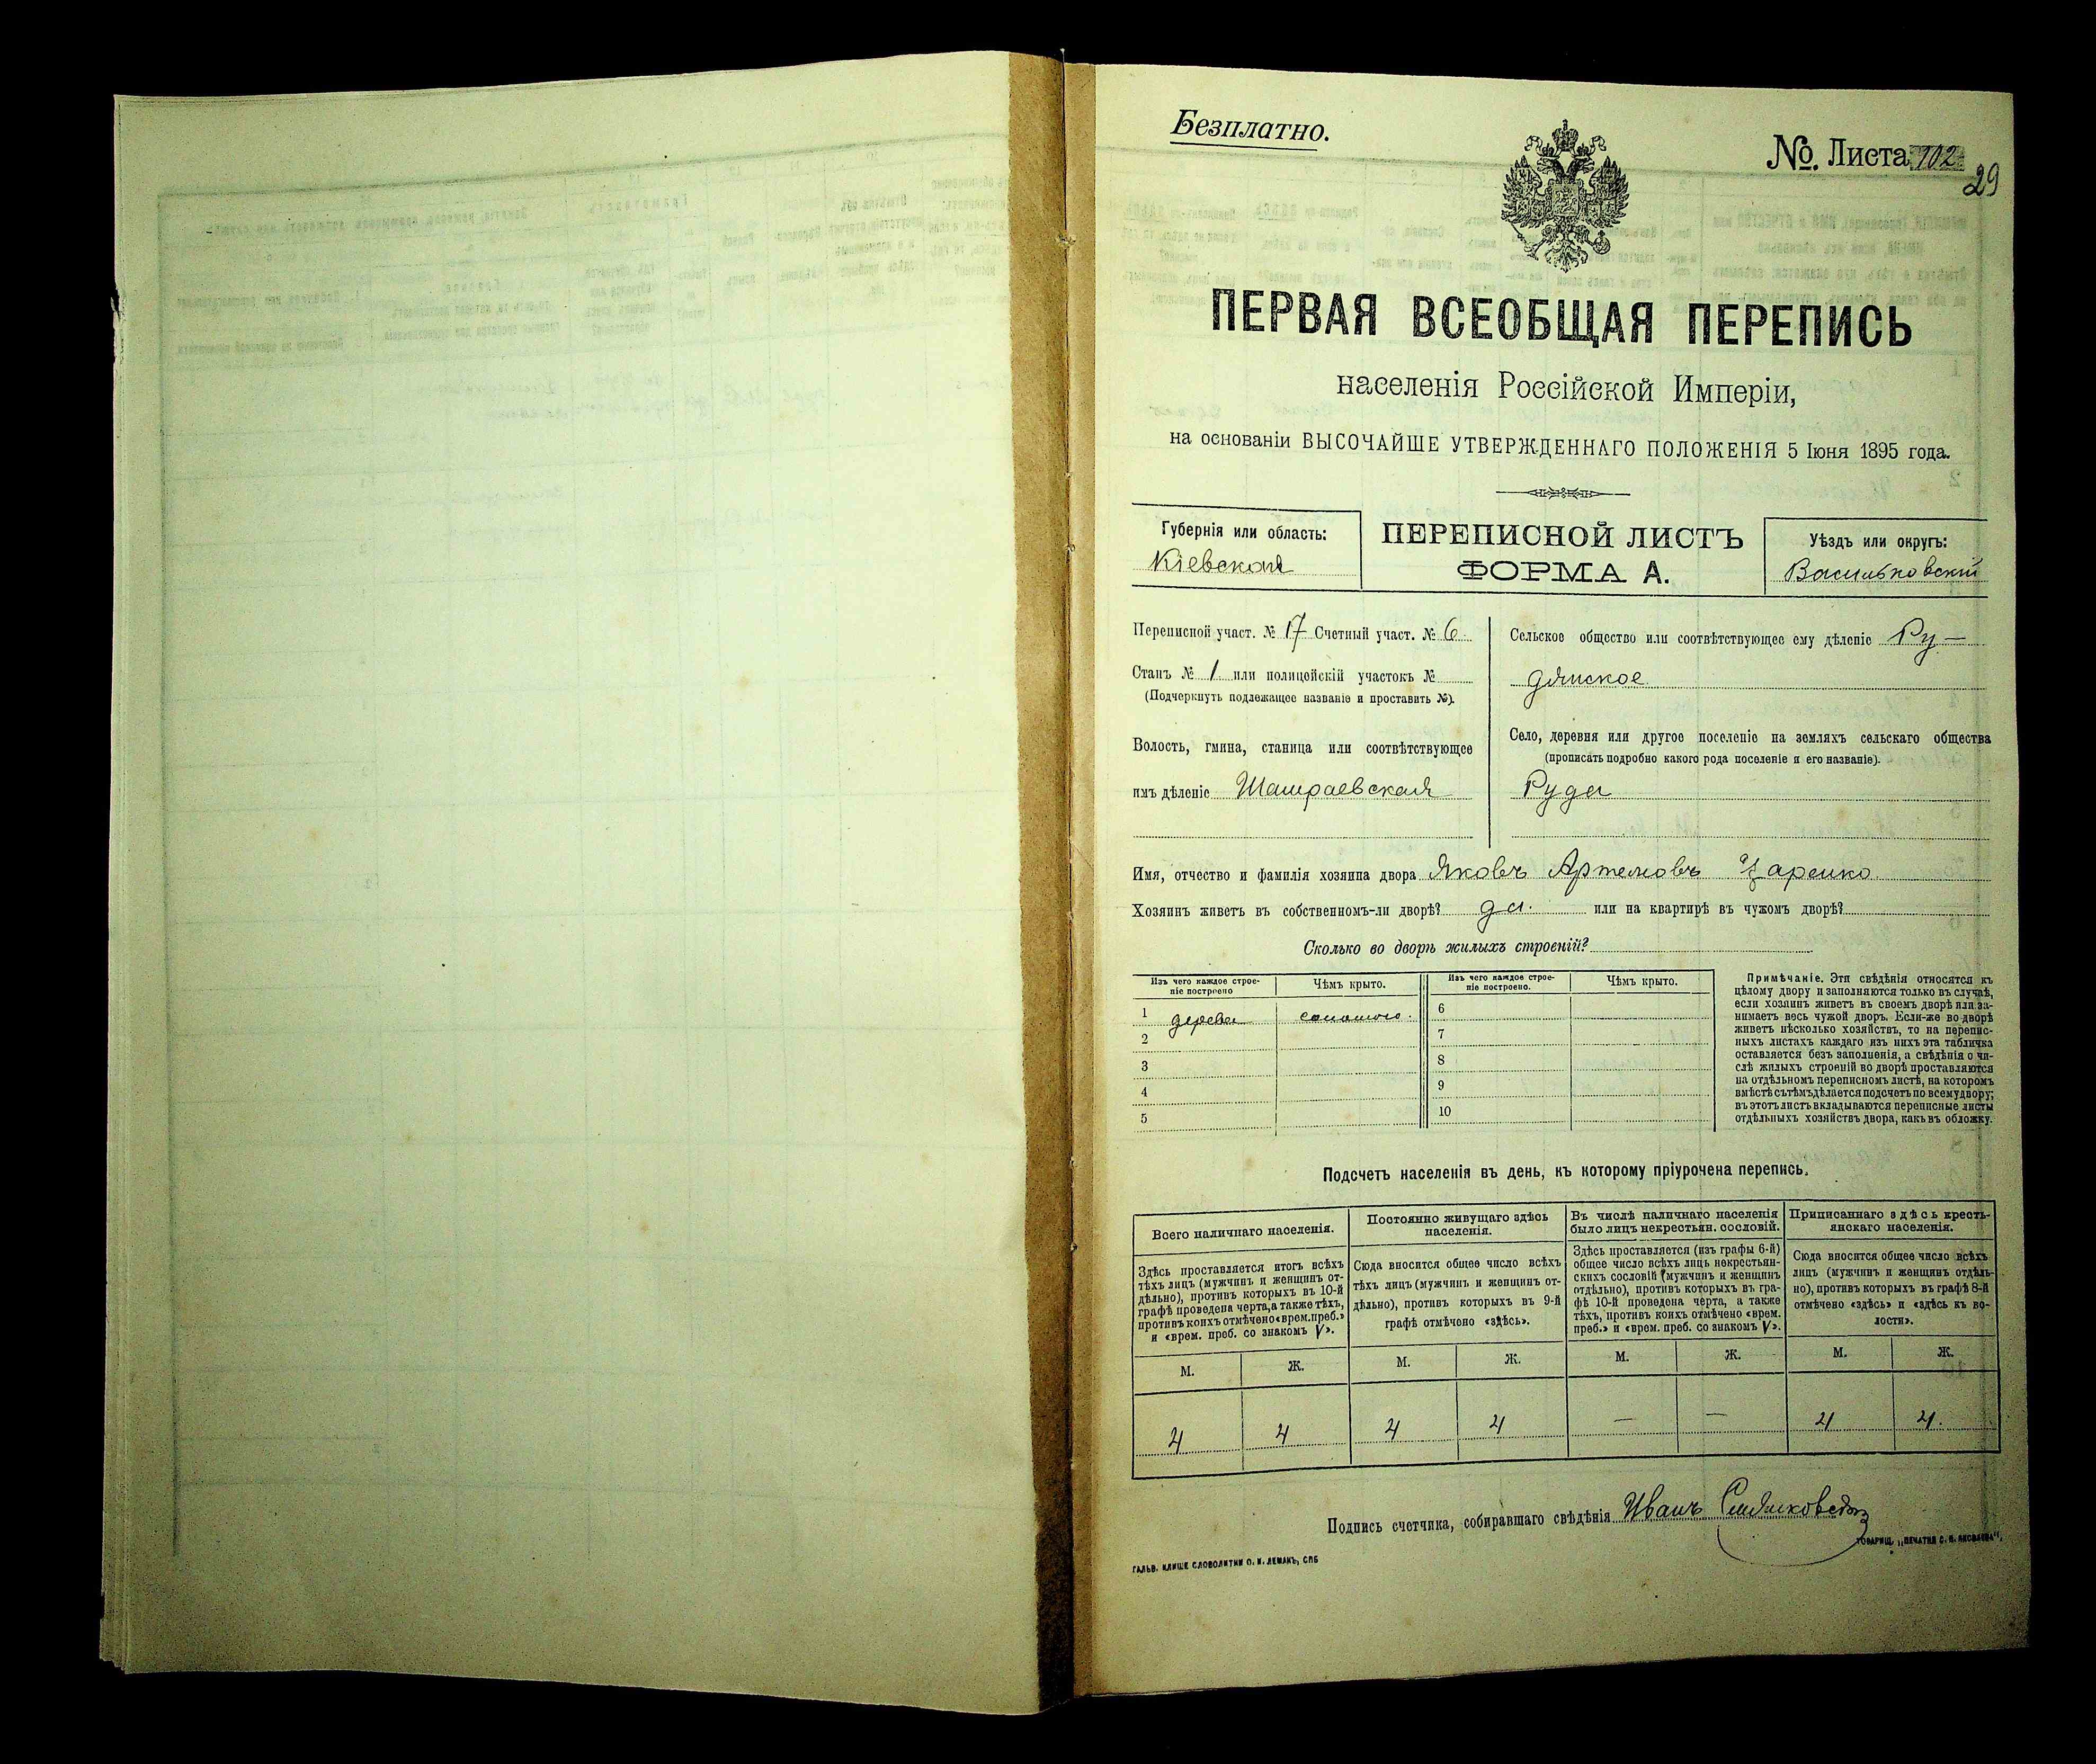 Безплатно.
№ Листа 102
29
ПЕРВАЯ ВСЕОБЩАЯ ПЕРЕПИСЬ
населенія Россійской Имперіи,
на основаніи ВЫСОЧАЙШЕ УТВЕРЖДЕННАГО ПОЛОЖЕНІЯ 5 Іюня 1895 года.
Губернія или область:
Кіевская
ПЕРЕПИСНОЙ ЛИСТЪ
ФОРМА А.
Уѣздъ или округъ:
Васильковскій
Переписной участ. № 17 Счетный участ. № 6
Станъ № 1 или полицейскій участокъ №
(Подчеркнуть подлежащее названіе и проставить №).
Волость, гмина, станица или соотвѣтствующее
имъ дѣленіе Шамраевская
Сельское общество или соотвѣтствующее ему дѣленіе Ру-
дянское
Село, деревня или другое поселеніе на земляхъ сельскаго общества
(прописать подробно какого рода поселеніе и его названіе).
Руда
Имя, отчество и фамилія хозяина двора Яковъ Артемовъ Царенко
Хозяинъ живетъ въ собственномъ-ли дворѣ? да. или на квартирѣ въ чужомъ дворѣ?
Сколько во дворѣ жилыхъ строеній?
Изъ чего каждое строе-
ніе построено
Чѣмъ крыто.
Изъ чего каждое строе-
ніе построено.
Чѣмъ крыто.
1 дерева соломою.
2
3
4
5
6
7
8
9
10
Примѣчаніе. Эти свѣдѣнія относятся къ
цѣлому двору и заполняются только въ случаѣ,
если хозяинъ живетъ въ своемъ дворѣ или за-
нимаетъ весь чужой дворъ. Если-же во дворѣ
живетъ нѣсколько хозяйствъ, то на перепис-
ныхъ листахъ каждаго изъ нихъ эта табличка
оставляется безъ заполненія, а свѣдѣнія о чи-
слѣ жилыхъ строеній во дворѣ проставляются
на отдѣльномъ переписномъ листѣ, на которомъ
вмѣстѣ съ тѣмъ дѣлается подсчетъ по всему двору;
въ этотъ листъ вкладываются переписные листы
отдѣльныхъ хозяйствъ двора, какъ въ обложку.
Подсчетъ населенія въ день, къ которому пріурочена перепись.
Всего наличнаго населенія.
Здѣсь проставляется итогъ всѣхъ
тѣхъ лицъ (мужчинъ и женщинъ от-
дѣльно), противъ которыхъ въ 10-й
графѣ проведена черта, а также тѣхъ,
противъ коихъ отмѣчено «врем. преб.»
и «врем. преб. со знакомъ V».
Постоянно живущаго здѣсь
населенія.
Сюда вносится общее число всѣхъ
тѣхъ лицъ (мужчинъ и женщинъ от-
дѣльно), противъ которыхъ въ 9-й
графѣ отмѣчено «здѣсь».
Въ числѣ наличнаго населенія
было лицъ некрестьян. сословій.
Здѣсь проставляется (изъ графы 6-й)
общее число всѣхъ лицъ некрестьян-
скихъ сословій (мужчинъ и женщинъ
отдѣльно), противъ которыхъ въ гра-
фѣ 10-й проведена черта, а также
тѣхъ, противъ коихъ отмѣчено «врем.
преб.» и «врем. преб. со знакомъ V».
Приписаннаго здѣсь кресть-
янскаго населенія.
Сюда вносится общее число всѣхъ
лицъ (мужчинъ и женщинъ отдѣль-
но), противъ которыхъ въ графѣ 8-й
отмѣчено «здѣсь» и «здѣсь къ во-
лости».
М. Ж. М. Ж. М. Ж. М. Ж.
4 4 4 4 — — 4 4.
Подпись счетчика, собиравшаго свѣдѣнія Иванъ
ГАЛЬВ. КЛИШЕ СЛОВОЛИТНИ О. И. ЛЕМАНЪ, СПБ
ТОВАРИЩ. „ПЕЧАТНЯ С. П. ЯКОВЛЕВА“.